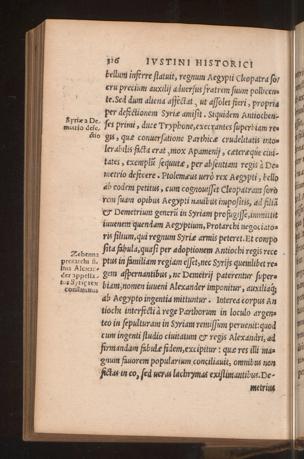 316 IVSTINI HISTORICI
bellum inferre statuit, regnum Aegypti Cleopatra so-
cru precium auxilij aduersus fratrem suum pollicen-
te. Sed dum aliena affectat, ut assolet fieri, propria
per defectionem Syriæ amisit. Siquidem Antiochen-
Syriæ a De-
metrio defe-
ctio
ses primi, duce Tryphone, execrantes superbiam re-
gis, quæ conuersatione Parthicæ crudelitatis into-
lerabilis facta erat, mox Apameni, cæteræque ciui-
tates, exemplũ sequutæ, per absentiam regis à De-
metrio defecere. Ptolemæus uerò rex Aegypti, bello
ab eodem petitus, cum cognouisset Cleopatram soro
rem suam opibus Aegypti nauibus impositis, ad filiã
& Demetrium generũ in Syriam profugisse, immittit
iuuenem quendam Aegyptium, Protarchi negociato-
ris filium, qui regnum Syriæ armis peteret. Et compo
sita fabula, quasi per adoptionem Antiochi regis rece
Zebenna
protarchi fi-
lius Alexan-
der appella-
tus Syriæ rex
constituitur
ptus in familiam regiam esset, nec Syrijs quemlibet re-
gem aspernantibus, ne Demetrij paterentur super-
biam, nomen iuueni Alexander imponitur, auxiliaq́;
ab Aegypto ingentia mittuntur. Interea corpus An
tiochi interfecti à rege Parthorum in loculo argen-
teo in sepulturam in Syriam remissum peruenit: quod
cum ingenti studio ciuitatum & regis Alexandri, ad
firmandam fabulæ fidem, excipitur: quæ res illi ma-
gnum fauorem popularium conciliauit, omnibus non
fictas in eo, sed ueras lachrymas existimantibus. De-
metrius